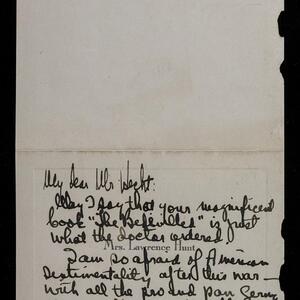 My dear Mr Hecht:
May I say that your magnificent
book "The Bedevilled" is just
what the doctor ordered!
Mrs. Lawrence Hunt
I am so afraid of American
Sentimentality after this war —
with all the pro and pan